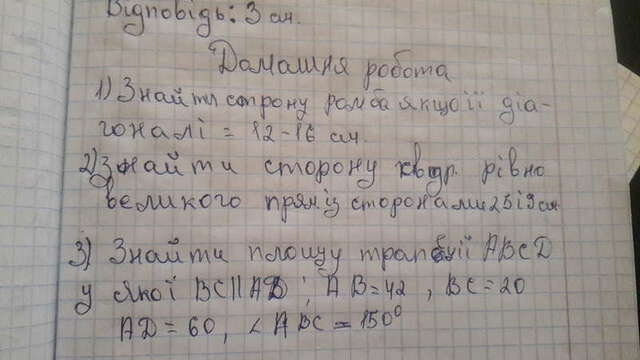 Відповідь: 3 см.
Домашня робота
1) Знайти сторону ромба якщо її діа-
гоналі = 12-16 см.
2) Знайти сторону квадр. рівно
великого прям. із сторонами 25 і 9 см.
3) Знайти площу трапеції ABCD
у якої BC||AD, AB=42, BC=20
AD=60, ∠ABC=150°